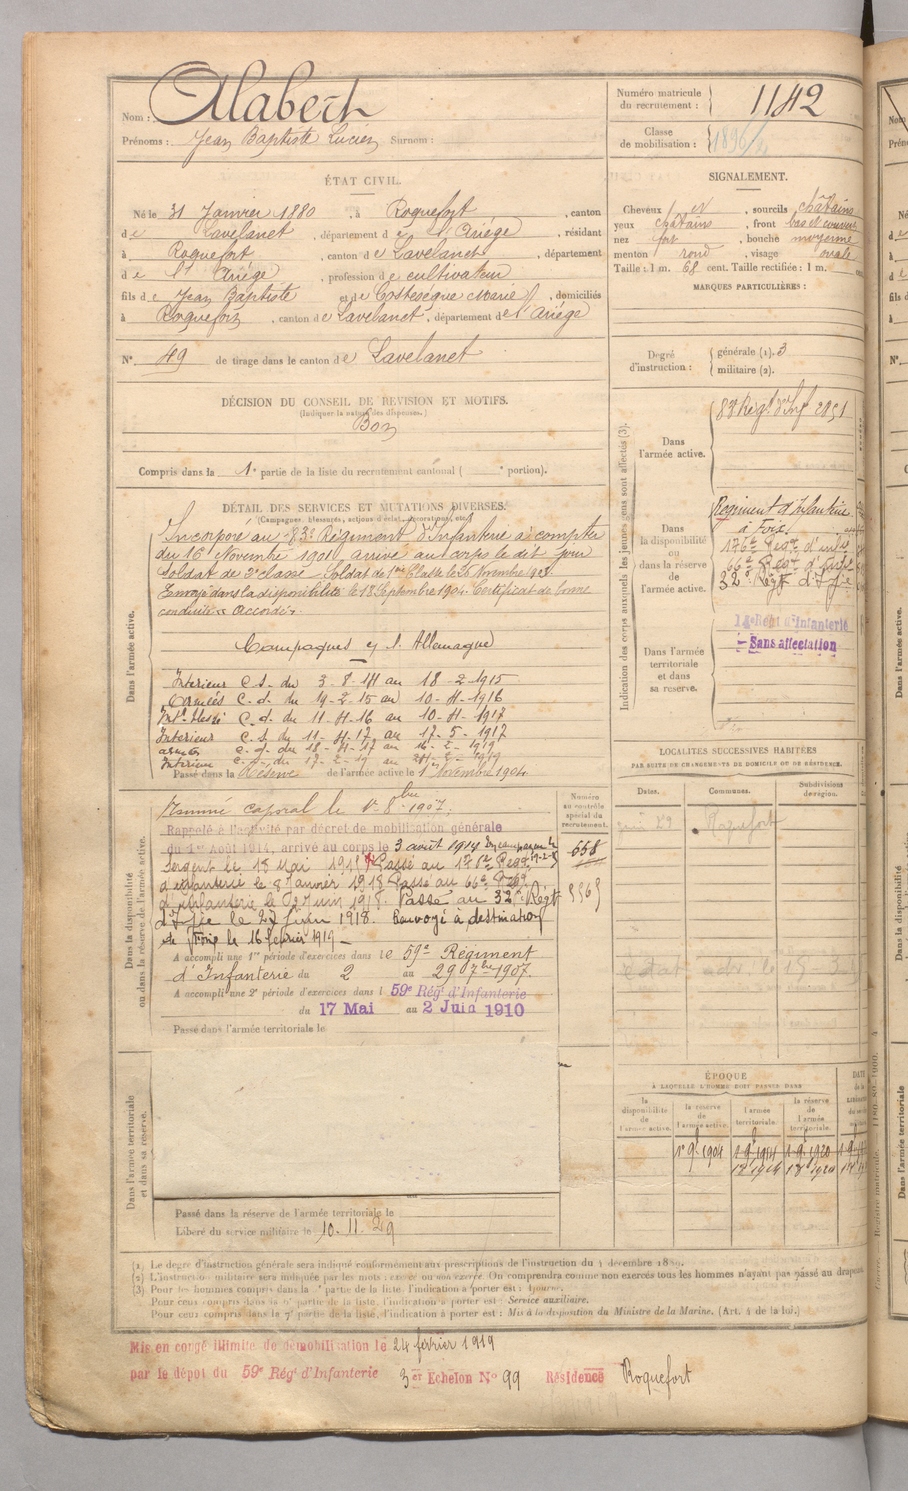 Nom : Alabert
Prénoms : Jean Baptiste Lucien Surnom :
Numéro matricule du recrutement : 1142
Classe de mobilisation : 1896
ÉTAT CIVIL.
Né le 31 Janvier 1880, à Roquefort, canton
de Lavelanet, département de l'Ariège, résidant
à Roquefort, canton de Lavelanet, département
de l'Ariège, profession de cultivateur
fils de Jean Baptiste et de Costeseque Marie, domiciliés
à Roquefort, canton de Lavelanet, département de l'Ariège
N° 49 de tirage dans le canton de Lavelanet
SIGNALEMENT.
Cheveux et, sourcils châtains
yeux châtains, front bas et couvert
nez fort, bouche moyenne
menton rond, visage ovale
Taille : 1 m. 68 cent. Taille rectifiée : 1 m. cent.
MARQUES PARTICULIÈRES :
Degré d'instruction : générale (1). 3
militaire (2).
DÉCISION DU CONSEIL DE REVISION ET MOTIFS.
(Indiquer la nature des dispenses.)
Bon
Compris dans la 1e partie de la liste du recrutement cantonal ( e portion).
DÉTAIL DES SERVICES ET MUTATIONS DIVERSES.
(Campagnes, blessures, actions d'éclat, décorations, etc.)
Dans l'armée active.
Incorporé au 83e Régiment d'Infanterie à compter
du 16 Novembre 1901 arrivé au corps le dit jour
Soldat de 2e classe. Soldat de 1ère Classe le 25 Novembre 1902.
Envoyé dans la disponibilité le 18 Septembre 1904. Certificat de bonne
conduite « Accordé ».
Campagnes c/ l'Allemagne
Intérieur C.S. du 3-8-14 au 18-2-1915
Armées C.d. du 19-2-15 au 10-4-1916
Int. blessé C.d. du 11-4-16 au 10-4-1917
Intérieur C.S. du 11-4-17 au 17-5-1917
Armées c.d. du 18-
Intérieur C.S. du 17-2-19 au
Passé dans la Réserve de l'armée active le 1er Novembre 1904
Dans la disponibilité ou dans la réserve de l'armée active.
Nommé caporal le 1er 8bre 1907.
Rappelé à l'activité par décret de mobilisation générale
du 1er Août 1914, arrivé au corps le 3 août 1914
Sergent le 18 Mai Passé au 176e Regt
d'infanterie le 8 Janvier 1918 Passé au 66e Regt
d'infanterie le Juin 1918. Passé au 32e Régt
d'Inf le 27 Juin 1918. Renvoyé à destination
de Foix le 16 février 1919
A accompli une 1re période d'exercices dans le 59e Régiment
d'Infanterie du 2 au 29 7bre 1907.
A accompli une 2e période d'exercices dans l 59e Régt d'Infanterie
du 17 Mai au 2 Juin 1910
Passé dans l'armée territoriale le
Numéro au contrôle spécial du recrutement.
668
Dans l'armée territoriale et dans sa réserve.
Passé dans la réserve de l'armée territoriale le
Libéré du service militaire le 10.11.29
Indication des corps auxquels les jeunes gens sont affectés (3).
Dans l'armée active.
83 Régt d'Inf 2851
Dans la disponibilité ou dans la réserve de l'armée active.
Régiment d'Infanterie
à Foix
176e Regt d'infie
66e Regt d'infie
32e Régt d'Infie
Dans l'armée territoriale et dans sa réserve.
14e Régt d'Infanterie
Sans affectation
LOCALITÉS SUCCESSIVES HABITÉES
PAR SUITE DE CHANGEMENTS DE DOMICILE OU DE RÉSIDENCE.
Dates. Communes. Subdivisions de région.
Roquefort
ÉPOQUE
À LAQUELLE L'HOMME DOIT PASSER DANS
la disponibilité de l'armée active. la réserve de l'armée active. l'armée territoriale. la réserve de l'armée territoriale.
1er 9bre 1904 1 9 1914 1 9 1920
(1) Le degré d'instruction générale sera indiqué conformément aux prescriptions de l'instruction du
(2) L'instruction militaire sera indiquée par les mots : exercé ou non exercé. On comprendra comme non exercés tous les hommes n'ayant pas passé au drapeau.
(3) Pour les hommes compris dans la partie de la liste, l'indication à porter est : Ajourné.
Pour ceux compris dans la partie de la liste, l'indication à porter est : Service auxiliaire.
Pour ceux compris dans la 7e partie de la liste, l'indication à porter est : Mis à la disposition du Ministre de la Marine. (Art. 4 de la loi.)
Mis en congé illimité de démobilisation le 24 février 1919
par le dépôt du 59e Régt d'Infanterie 3er Echelon N° 99 Résidence Roquefort